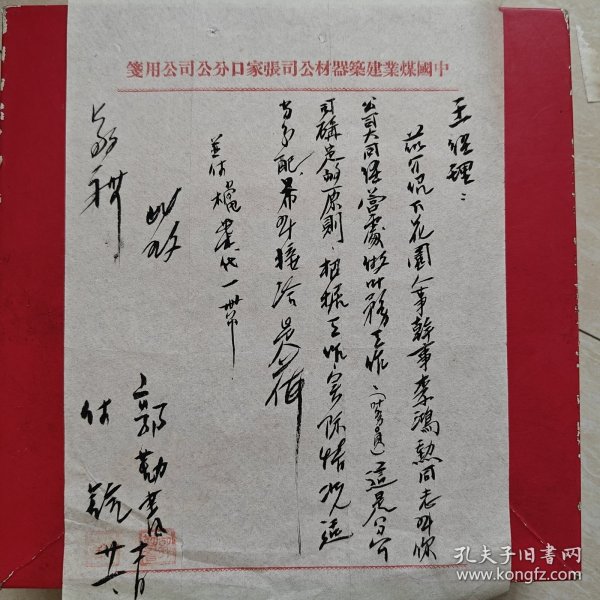 中國煤業建築器材公司張家口分公司公用箋
王經理：
茲介紹下花園人事幹事李鴻勲同志到你
公司大同經營處做財務工作（財務員）這是分公司
可確定的原則，根據工作實際情況適
當分配，希到接洽是荷
並付檔案袋一冊
此致
敬禮
郭勤
孔夫子旧书网
www.kongfz.com